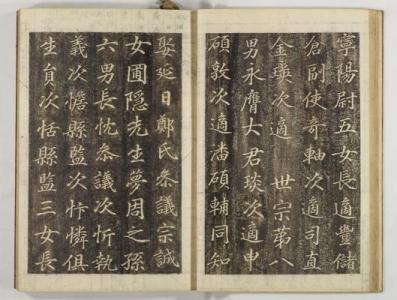 寧陽尉五女長適豐儲
倉副使奇軸次適司直
金瑛次適 世宗第八
男永膺大君琰次適申
碩敦次適潘碩輔同知
娶延日鄭氏叅議宗誠
女圃隱先生夢周之孫
六男長忱叅議次忻執
義次憺縣監次忭憐俱
生員次恬縣監三女長